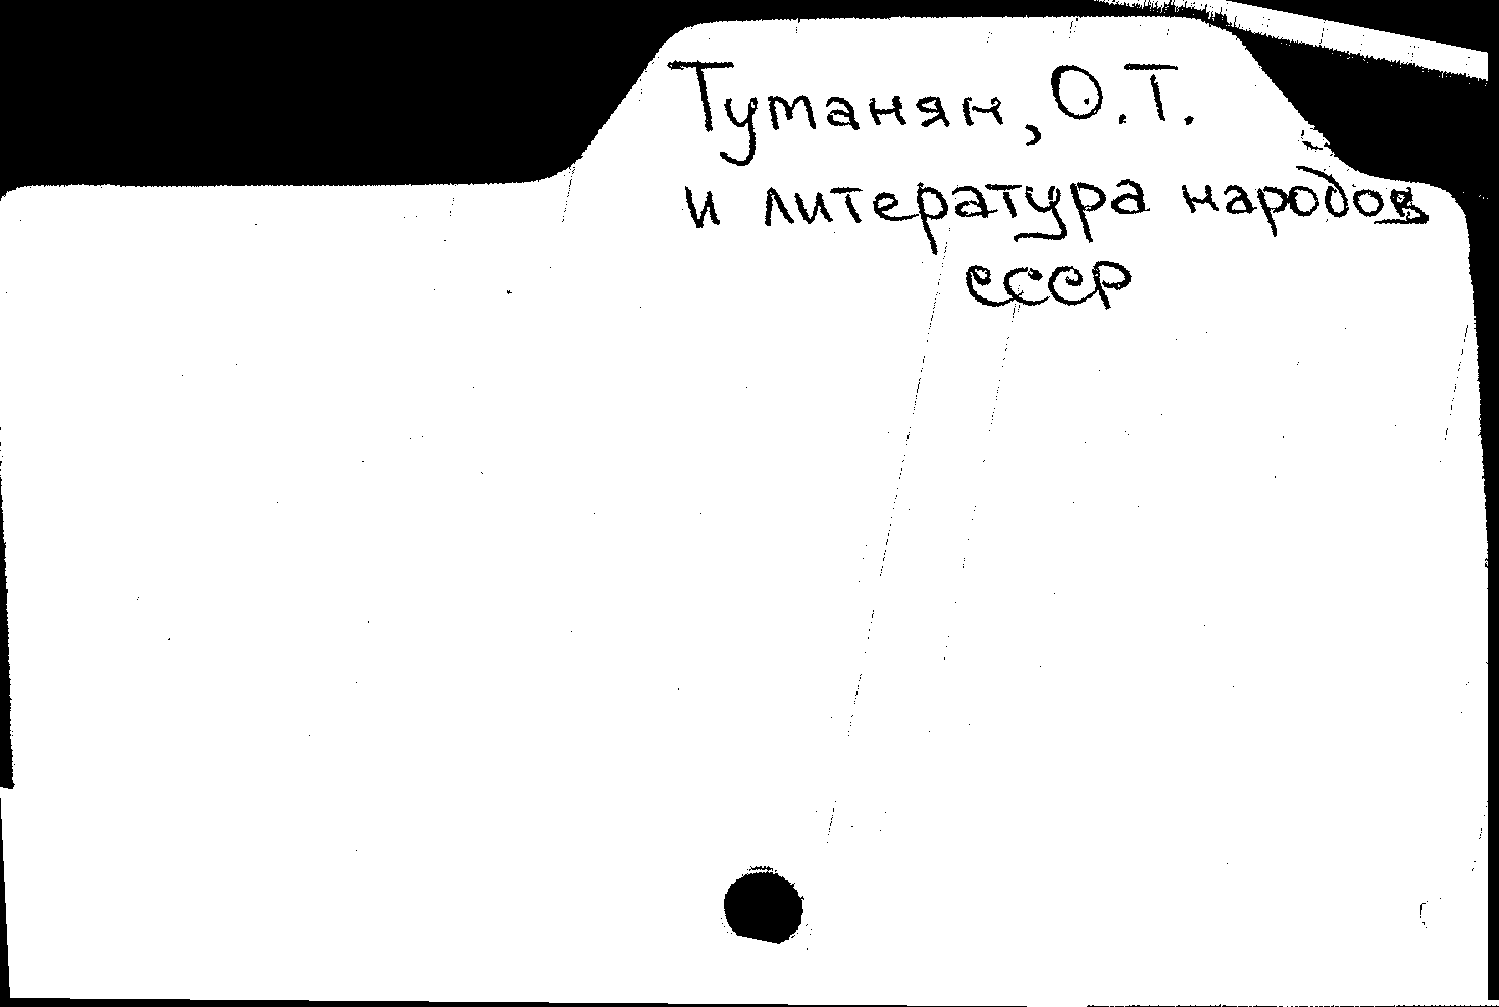 Туманян, О.Т.
и литература народов
СССР